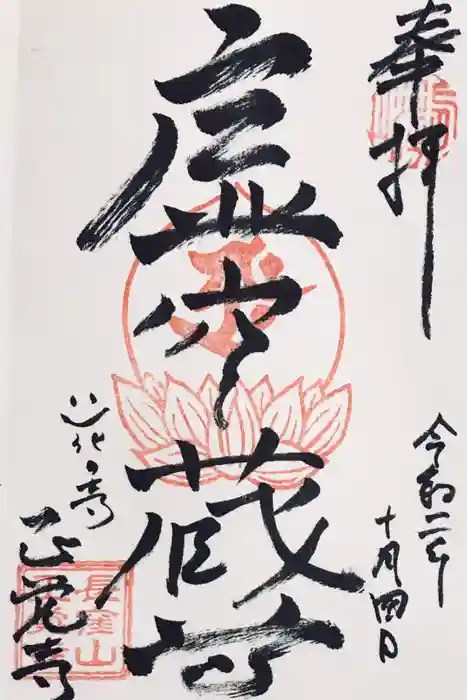 奉拝
令和二年
十月四日
虚空蔵廾
正覚寺
長窪山